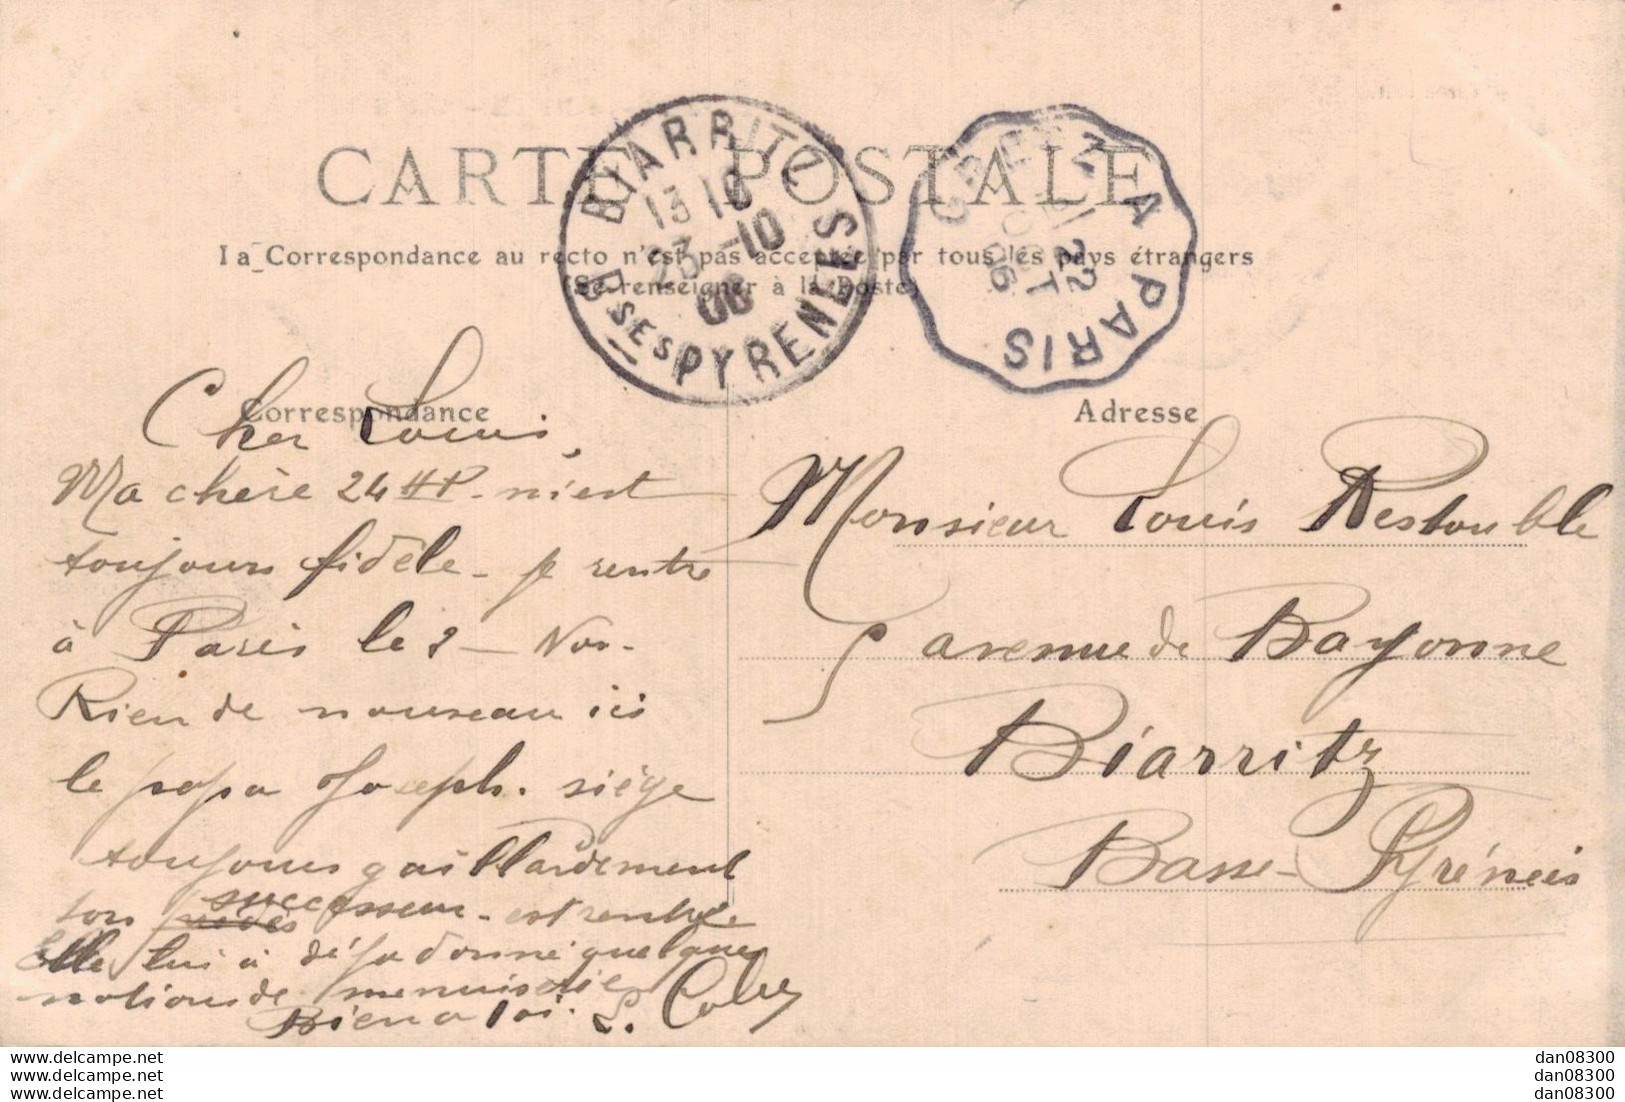 CARTE POSTALE
La Correspondance au recto n'est pas acceptée par tous les pays étrangers
(Se renseigner à la Poste)
BIARRITZ
13 10
23 -10
06
Bses PYRENEES
GRETZ A PARIS
22
OCT
06
Correspondance
Adresse
Cher Louis,
Ma chère 24 HP - m'est
toujours fidèle - je rentre
à Paris le 2 - Nov -
Rien de nouveau ici
le papa Joseph. siège
toujours gaillardement
ton successeur - est rentré
Elle lui a déjà donné quelques
notions de menuiserie
Bien a toi.
Monsieur Louis Restouble
5 avenue de Bayonne
Biarritz
Basse-Pyrénées
www.delcampe.net
www.delcampe.net
www.delcampe.net
dan08300
dan08300
dan08300